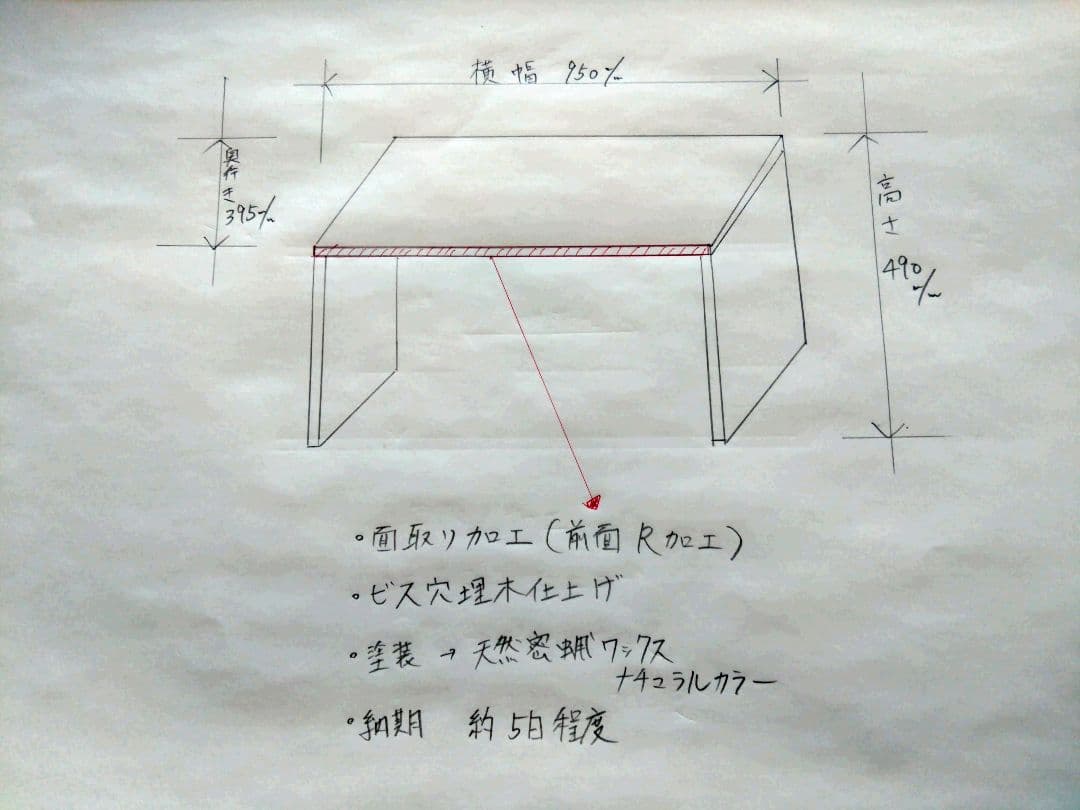 横幅 950㎜
奥行き
395㎜
高さ
490
㎜
・面取リ加工(前面R加工)
・ビス穴埋木仕上げ
・塗装 → 天然密蝋ワックス
ナチュラルカラー
・納期 約5日程度